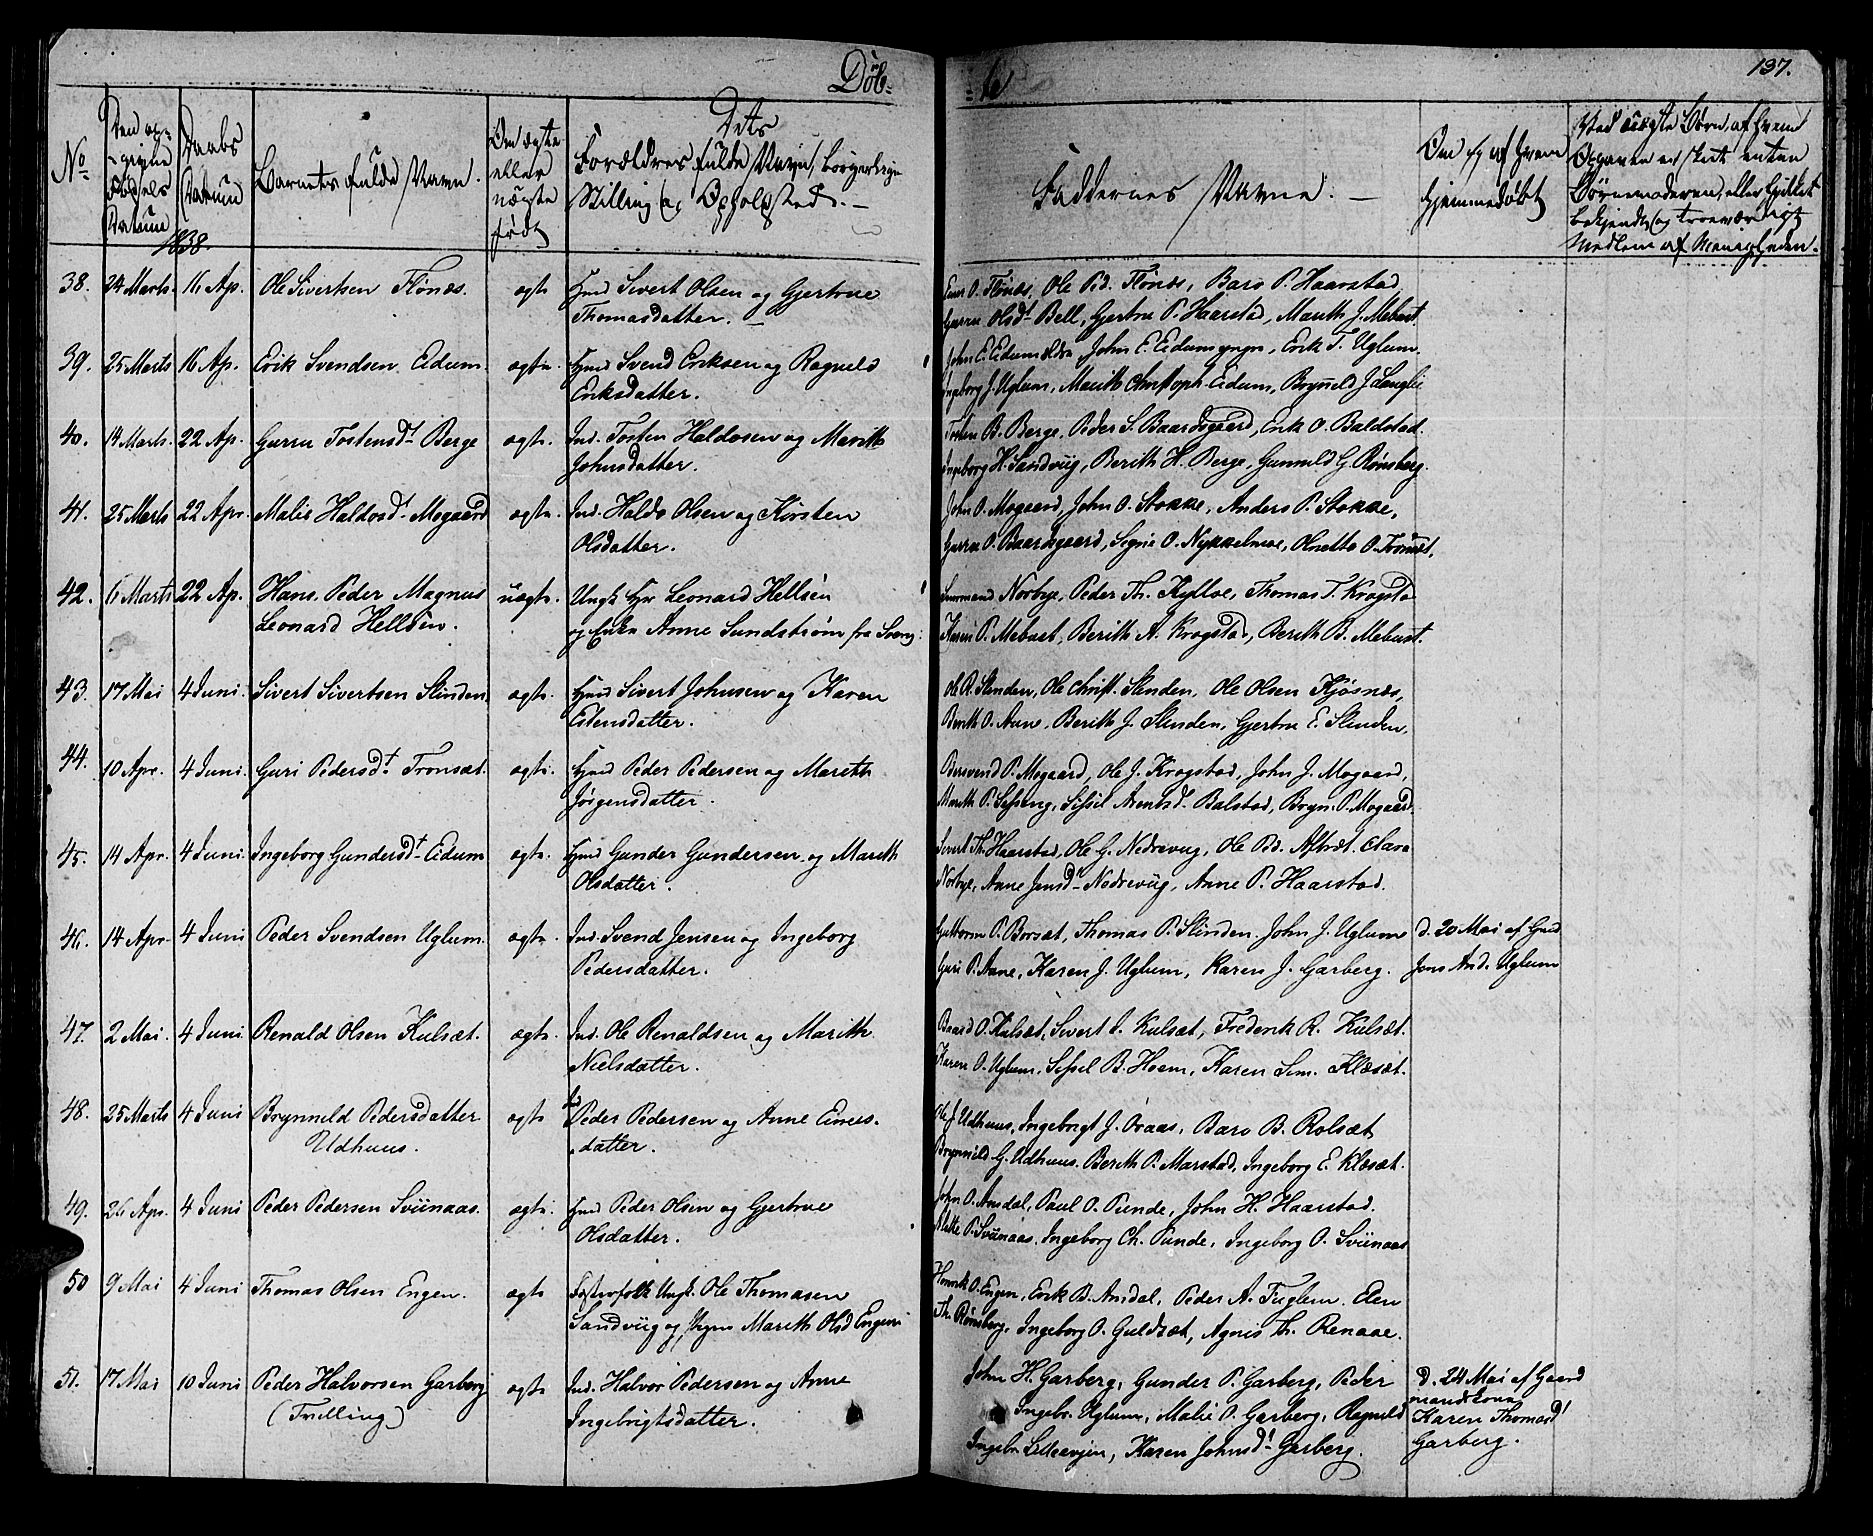 Døb- te 137.
No
Den op-
givne
Fødsels
Datum
Daabs
Datum
Barnets fulde Navn.
Om ægte
eller
uægte
født
Dets
Forældres fulde Navn, borgerlige
Stilling og Opholdsted. —
Faddernes Navne. —
Om og af hvem
hjemmedøbt
Ved uægte Børn, af hvem
Opgaven er skeet enten
Børnemoderen, eller hvilket
bekjendt og troeværdigt
Medlem af Menigheden.
1838.
38. 24 Marts. 16 Ap. Ole Sivertsen Flönæs. ægte Gmd Sivert Olsen og Gjertrue
Thomasdatter. —
O. Flönæs, Ole Ped. Flönæs, Baro P. Haarstad,
Gurru Olsdt Bell, Gjertru P. Haarstad, Marith J. Mebust.
39. 25 Marts 16 Ap. Erik Svendsen Eidum. ægte. Gmd Svend Eriksen og Ragnild
Eriksdatter.
John E. Eidum ældre, John E. Eidum yngr, Erik T. Uglum.
Ingeborg J. Uglum, Marith Christoph. Eidum, Brynild J. Langlie
40. 14 Marts. 22 Ap. Gurru Tostensdt Berge ægte. Ind. Tosten Haldosen og Marith
Johnsdatter.
Tosten B. Berge, Peder S. Baardsgaard, Erik O. Baldstad.
Ingeborg H. Sandviig, Berith H. Berge, Gunnild G. Rönsberg.
41. 25 Marts 22 Apr. Malie Haldosdt Mogaard ægte. Ind. Haldo Olsen og Kirsten
Olsdatter.
John O. Mogaard, John O. Stokke, Anders P. Stokke,
Gurru O. Baardsgaard, Segrie O. Nykkelmoe, Olnetta O. Tronsæt,
42. 6 Marts 22 Ap. Hans Peder Magnus uægte. Ungk. Hr Leonard Hellsén
Leonard Hellsén. og Enke Anne Sundström fra Sverig.
Norbye, Peder Th. Kylloe, Thomas T. Krogstad
Karen P. Mebust, Berith A. Krogstad, Berith B. Mebust.
43. 17 Mai 4 Juni. Sivert Sivertsen Slinden. ægte. Gmd Sivert Johnsen og Karen
Estensdatter.
Ole R. Slinden, Ole Christ. Slinden, Ole Olsen Kjösnæs,
Berith O. Aune, Berith J. Slinden, Gjertru E. Slinden,
44. 10 Apr. 4 Juni. Guri Pedersdt Tronsæt. ægte. Gmd Peder Pedersen og Marith
Jörgensdatter.
Bersvend P. Mogaard, Ole J. Krogstad, John J. Mogaard,
Marith P. Sesseng, Sissil Arentsdt Balstad, Bryn. P. Mogaard.
45. 14 Apr. 4 Juni. Ingeborg Gundersdt Eidum ægte. Gmd Gunder Gundersen og Marith
Olsdatter.
Sivert Th. Haarstad, Ole G. Nedreviig, Ole Pd. Aftret. Clara
Norbye, Anne Jensdt Nedreviig, Anne P. Haarstad.
46. 14 Apr. 4 Juni Peder Svendsen Uglum. ægte. Ind. Svend Jensen og Ingeborg
Pedersdatter.
Guttorm P. Borsæt, Thomas P. Slinden. John J. Uglum d. 20 Mai af Gmd
Guri P. Aune, Karen J. Uglum, Karen J. Garberg. Jens And. Uglum
47. 2 Mai. 4 Juni. Renald Olsen Kulsæt. ægte. Ind. Ole Renaldsen og Marith
Nielsdatter.
Baard O. Kulsæt, Sivert S. Kulsæt, Frederik R. Kulsæt.
Karen O. Uglum, Sissel B. Hoem, Karen Sim. Klæsæt.
48. 25 Marts 4 Juni Brynnild Pedersdatter ægte Peder Pedersen og Anne Einers-
Udhuus. datter.
Ole J. Udhuus, Ingebrigt J. Oraas, Baro B. Rolsæt
Brynnild G. Udhuus. Berith P. Marstad, Ingeborg E. Klæsæt.
49. 26 Apr. 4 Juni Peder Pedersen Sviinaas. ægte. Gmd Peder Olsen og Gjertrue
Olsdatter.
John O. Amdal, Paul O. Sunde, John H. Haarstad.
P. Sviinaas, Ingeborg Ch. Sunde, Ingeborg O. Sviinaas
50 9 Mai 4 Juni Thomas Olsen Engen. ægte Fæstefolk Ungk. Ole Thomasen
Sandviig og Pigen Marith Olsd Engen
Henrik O. Engen, Erik B. Amdal, Peder A. Fuglem. Elen
Th. Rönsberg, Ingeborg O. Guldsæt, Agnis Th. Renaae.
51. 17 Mai 10 Juni Peder Halvorsen Garberg ægte Ind. Halvor Pedersen og Anne
(Trilling) Ingebrigtsdatter.
John H. Garberg, Gunder P. Garberg, Peder d. 24 Mai af Gaard
Ingebr. Uglum, Malie O. Garberg, Ragnild mandskone
Ingebr. Lilleevjen, Karen Johnsdt Garberg. Karen Thomasdt
Garberg.